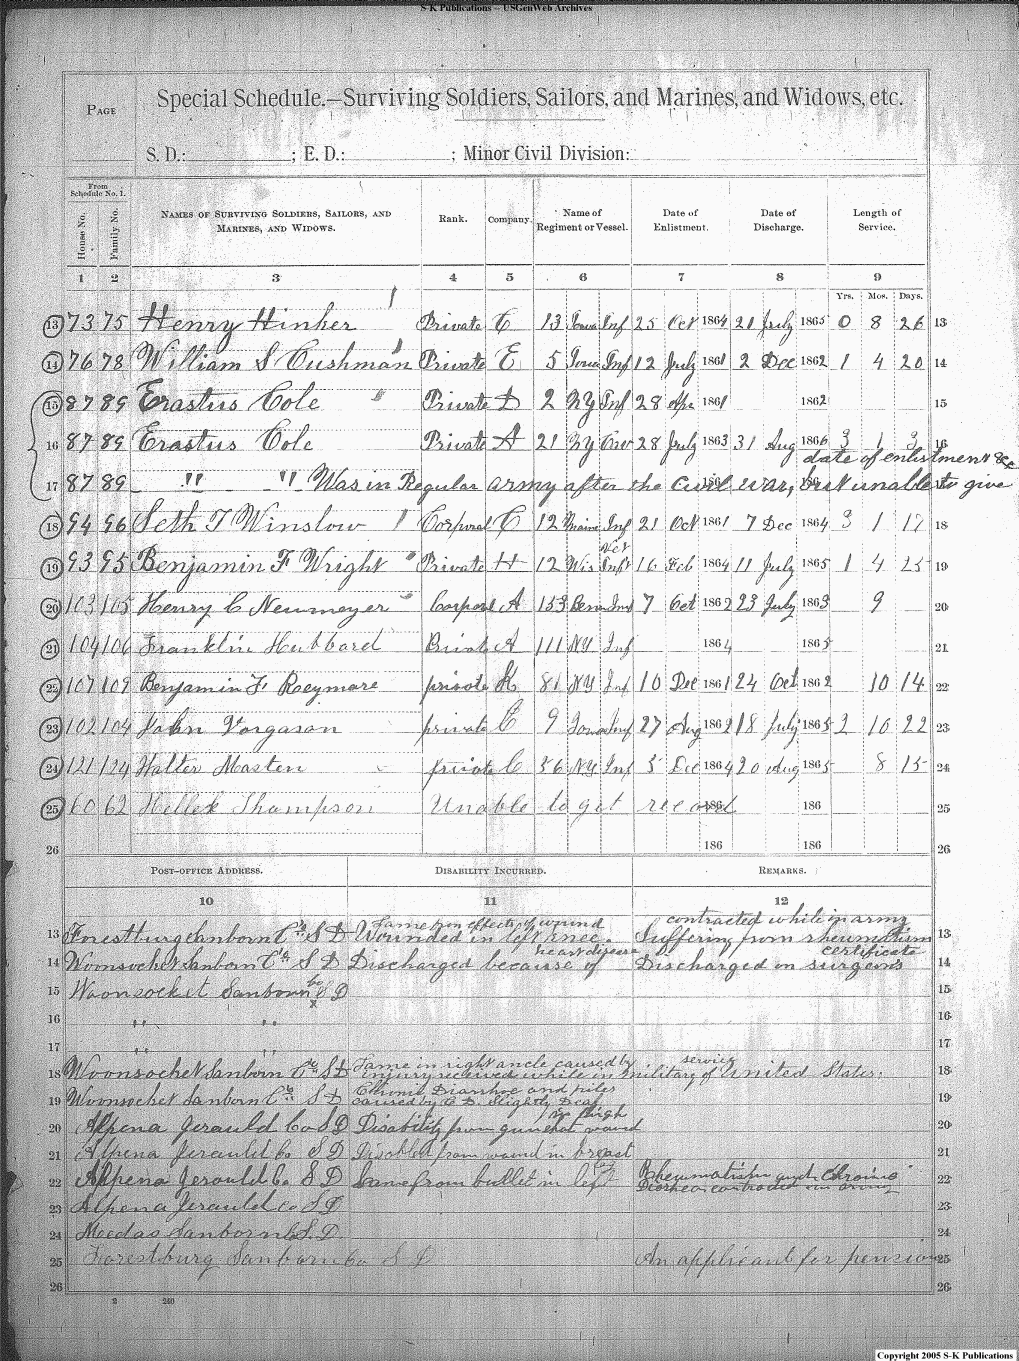 S-K Publications – USGenWeb Archives
PAGE
Special Schedule.—Surviving Soldiers, Sailors, and Marines, and Widows, etc.
S. D.: ; E. D.: ; Minor Civil Division:
From Schedule No. 1.
House No. Family No. NAMES OF SURVIVING SOLDIERS, SAILORS, AND MARINES, AND WIDOWS. Rank. Company. Name of Regiment or Vessel. Date of Enlistment. Date of Discharge. Length of Service.
1 2 3 4 5 6 7 8 9
Yrs. Mos. Days.
13 73 75 Henry Hinher Private C 13 Iowa Inf 25 Oct 1864 21 July 1865 0 8 26 13
14 76 78 William S Cushman Private E 5 Iowa Inf 12 July 1861 2 Dec 1862 1 4 20 14
15 87 89 Erastus Cole " Private D 2 NY Inf 28 Apr 1861 1862 15
16 87 89 Erastus Cole Private A 21 NY Cav 28 July 1863 31 Aug 1866 3 1 3 16
date of enlistment &c
17 87 89 " " Was in Regular army after the civil war, but unable to give
18 94 96 Seth T Winslow Corporal C 12 Maine Inf 21 Oct 1861 7 Dec 1864 3 1 17 18
Vet
19 93 95 Benjamin F Wright Private H 12 Wis Inft 16 Feb 1864 11 July 1865 1 4 25 19
20 103 105 Henry C Neumeyer Corporal A 153 Inf 7 Oct 1862 23 July 1863 9 20
21 104 106 Franklin Hubbard Private A 111 NY Inf 1864 1865 21
22 107 109 Benjamin F. Reymore private K 81 NY Inf 10 Dec 1861 24 Oct 1862 10 14 22
23 102 104 John Vorgason private C 9 Iowa Inf 27 Aug 1862 18 July 1865 2 10 22 23
24 121 124 Walter Masten private C 56 NY Inf 5 Dec 1864 20 Aug 1865 8 15 24
25 60 62 Hellek Thompson Unable to get record 186 186 25
26 186 186 26
POST-OFFICE ADDRESS. DISABILITY INCURRED. REMARKS.
10 11 12
Lame from effects of wound contracted while in army
13 Forestburg Sanborn Co S D Wounded in left knee. Suffering from rheumatism 13
heart disease certificate
14 Woonsocket Sanborn Co S D Discharged because of Discharged on surgeons 14
15 Woonsocket Sanborn Co S D 15
16 " " 16
17 " " 17
Lame in right ancle caused by service
18 Woonsocket Sanborn Co S D injury received while in military of United States. 18
Chronic Diarrhoe and piles
19 Woonsocket Sanborn Co S D caused by C D. Slightly Deaf 19
in thigh
20 Alpena Jerauld Co S D Disability from gunshot wound 20
21 Alpena Jerauld Co S D Disabled from wound in breast 21
22 Alpena Jerauld Co S D Lame from bullet in left Rheumatism and Chronic 22
Diorhea contracted in army
23 Alpena Jerauld Co S D 23
24 Sanborn Co S. D. 24
25 Forestburg Sanborn Co S D An applicant for pension 25
26 26
2 240
Copyright 2005 S-K Publications